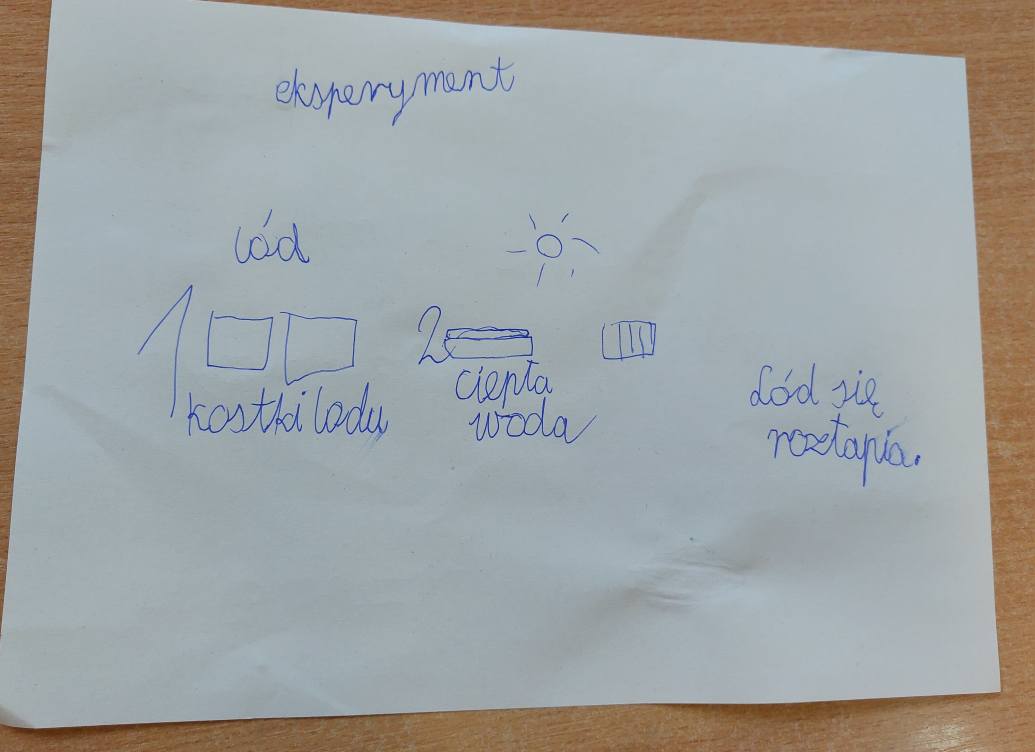 eksperyment
lód
1
kostki lodu
2
ciepła
woda
Lód się
roztapia.